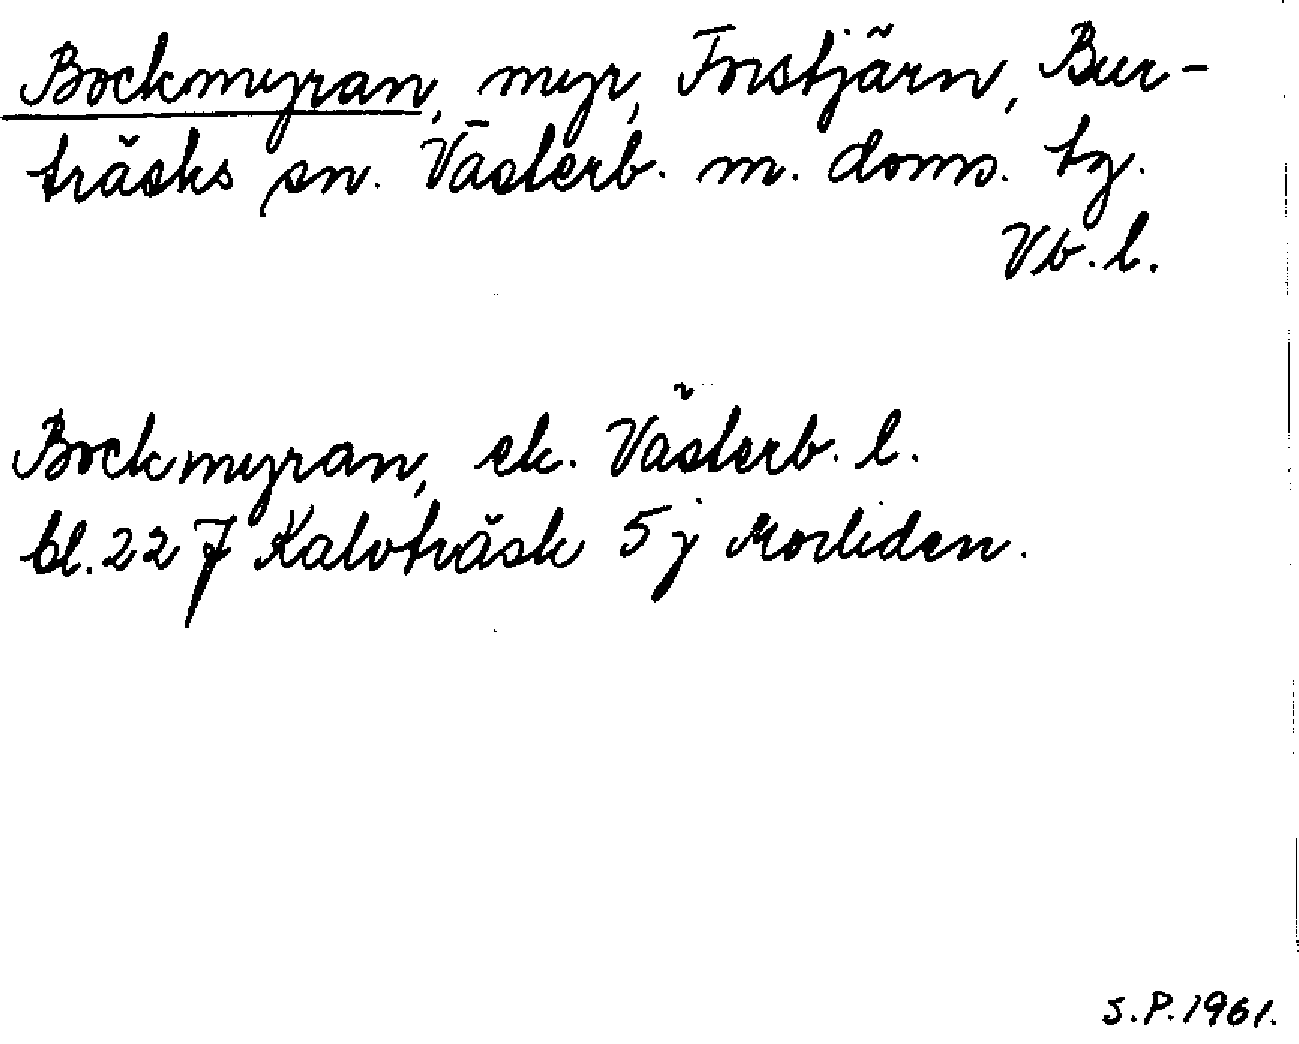 Bockmyran, myr, Forstjärn, Bur-
träsks sn. Västerb. m. doms. tg.
Vb. l.
Bockmyran, ek. Västerb. l.
bl. 22 J Kalvträsk 5 j Morliden.
S.P. 1961.